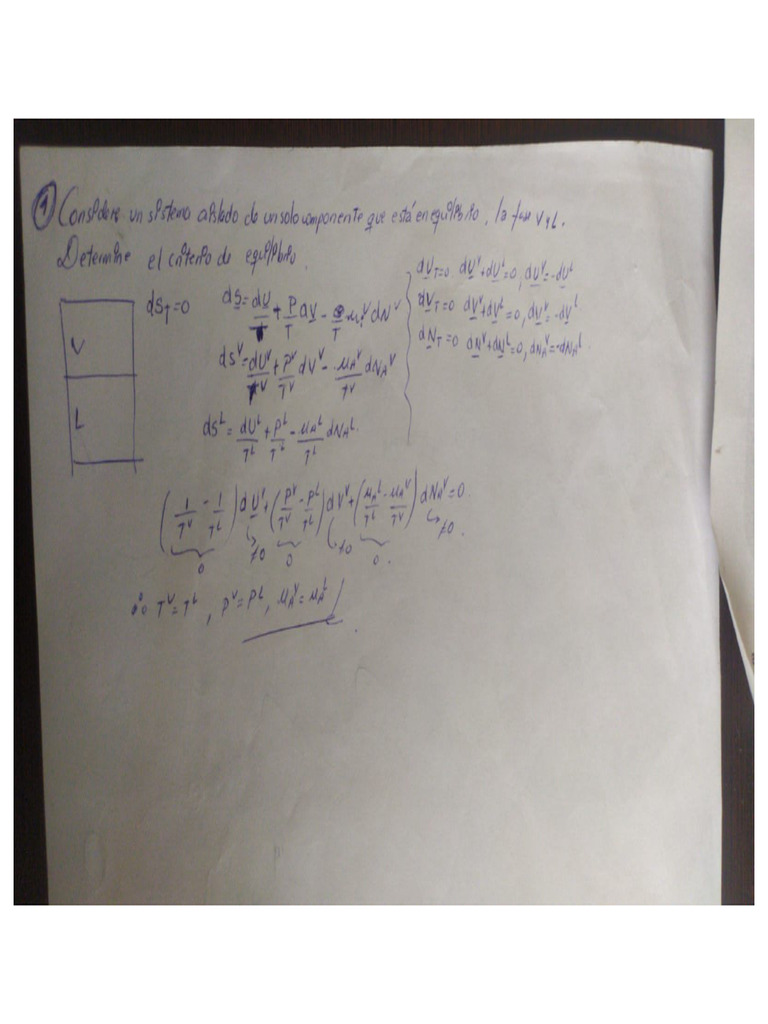 1 Considere un sistema aislado de un solo componente que está en equilibrio, la fase V y L.
Determine el criterio de equilibrio.
dS_T=0
dS = dU/T + P/T dV - μᵢᵛ dNᵛ
dSᵛ = dUᵛ/Tᵛ + Pᵛ/Tᵛ dVᵛ - μ_Aᵛ/Tᵛ dN_Aᵛ
dSᴸ = dUᴸ/Tᴸ + Pᴸ/Tᴸ - μ_Aᴸ/Tᴸ dN_Aᴸ.
dU_T=0 dUᵛ+dUᴸ=0, dUᵛ=-dUᴸ
dV_T=0 dVᵛ+dVᴸ=0, dVᵛ=-dVᴸ.
dN_T=0 dNᵛ+dNᴸ=0, dN_Aᵛ=-dN_Aᴸ.
V
L
(1/Tᵛ - 1/Tᴸ) dUᵛ + (Pᵛ/Tᵛ - Pᴸ/Tᴸ) dVᵛ + (μ_Aᴸ/Tᴸ - μ_Aᵛ/Tᵛ) dN_Aᵛ = 0
0 ≠0 0 ≠0 0. ≠0.
∴ Tᵛ=Tᴸ, Pᵛ=Pᴸ, μ_Aᵛ=μ_Aᴸ